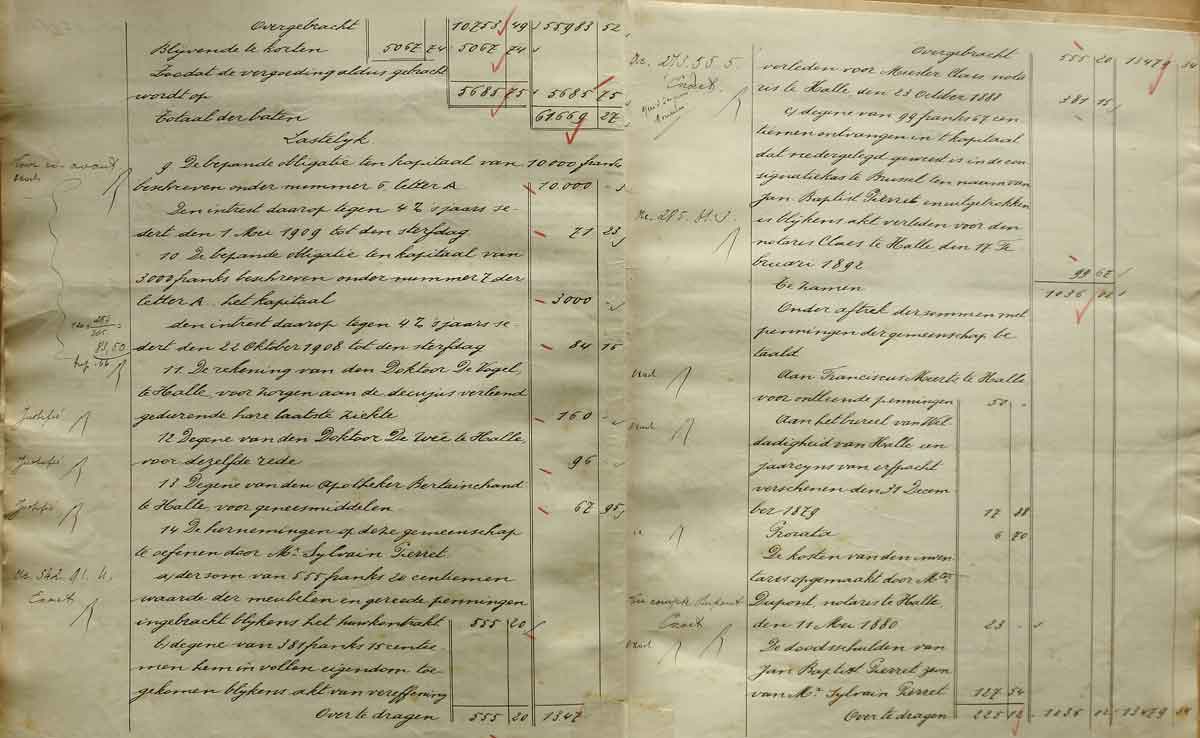 Overgebracht 10753 49 55983 52
Blijvende te korten 5067 74 5067 74
Zoodat de vergoeding aldus gebracht
wordt op 5685 75 5685 75
Totaal der baten 61669 27
Lastelijk
9 De bepande obligatie ten kapitaal van 10.000 franks
beschreven onder nummer 6, letter A 10.000 -
Den intrest daarop tegen 4 % 's jaars se-
dert den 1 Mei 1909 tot den sterfdag 71 23
10 De bepande obligatie ten kapitaal van
3000 franks beschreven onder nummer 7 der
letter A. het kapitaal 3000 -
den intrest daarop tegen 4 % 's jaars se-
dert den 22 Oktober 1908 tot den sterfdag 84 15
11 De rekening van den Doktoor De Vogel,
te Halle, voor zorgen aan de decujus verleend
gedurende hare laatste ziekte 160 -
Justifié
12 Degene van den Doktoor De Weé te Halle,
voor dezelfde rede 96
Justifié
13 Degene van den Apotheker Bertainchand
te Halle, voor geneesmiddelen 67 95
Justifié
14 De hernemingen op deze gemeenschap
te oefenen door Mr. Sylvain Pierret
a) der som van 555 franks 20 centiemen
Exact
waarde der meubelen en gereede penningen
ingebracht blijkens het huwkontrakt 555 20
b) degene van 381 franks 15 centie
men hem in vollen eigendom toe-
gekomen blijkens akt van vereffening
Over te dragen 555 20 1347
Overgebracht 555 20 13479 34
verleden voor Meester Claes nota
Exact.
ris te Halle den 23 October 1888 381 15
c) degene van 99 franks 67 cen
tiemen ontvangen in 't kapitaal
dat nedergelegd geweest is in de con
signatiekas te Brussel ten naam van
Jan Baptist Pierret en uitgetrokken
is blijkens akt verleden voor den
notaris Claes te Halle den 17 Fe
bruari 1892 99 67
Te zamen 1036 02
Onder aftrek der sommen met
penningen der gemeenschap be
taald
Aan Franciscus Meerts te Halle
voor ontleende penningen 50 -
Aan het bureel van Wel
dadigheid van Halle een
jaarcyns van erfpacht
verschenen den 31 Decem-
ber 1879 17 88
Prorata 6 70
De kosten van den inven
taris opgemaakt door Mter
Dupont, notaris te Halle,
Exact.
den 11 Mei 1880 23 -
De doodsschulden van
Jan Baptist Pierret zoon
van Mr. Sylvain Pierret 127 54
Over te dragen 225 12 1036 02 13479 34